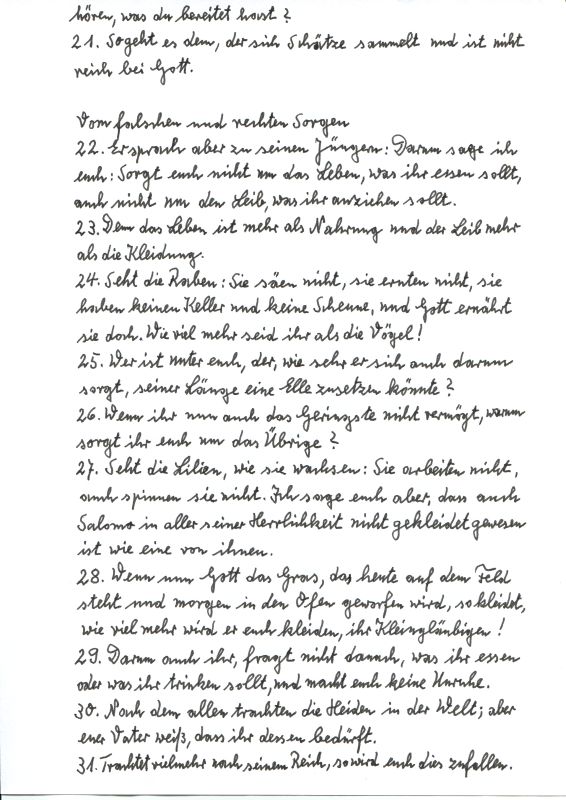 hören, was du bereitet hast?
21. So geht es dem, der sich Schätze sammelt und ist nicht
reich bei Gott.
Vom falschen und rechten Sorgen
22. Er sprach aber zu seinen Jüngern: Darum sage ich
euch: Sorgt euch nicht um das Leben, was ihr essen sollt,
auch nicht um den Leib, was ihr anziehen sollt.
23. Denn das Leben ist mehr als Nahrung und der Leib mehr
als die Kleidung.
24. Seht die Raben: Sie säen nicht, sie ernten nicht, sie
haben keinen Keller und keine Scheune, und Gott ernährt
sie doch. Wie viel mehr seid ihr als die Vögel!
25. Wer ist unter euch, der, wie sehr er sich auch darum
sorgt, seiner Länge eine Elle zusetzen könnte?
26. Wenn ihr nun auch das Geringste nicht vermögt, warum
sorgt ihr euch um das Übrige?
27. Seht die Lilien, wie sie wachsen: Sie arbeiten nicht,
auch spinnen sie nicht. Ich sage euch aber, dass auch
Salomo in aller seiner Herrlichkeit nicht gekleidet gewesen
ist wie eine von ihnen.
28. Wenn nun Gott das Gras, das heute auf dem Feld
steht und morgen in den Ofen geworfen wird, so kleidet,
wie viel mehr wird er euch kleiden, ihr Kleingläubigen!
29. Darum auch ihr, fragt nicht danach, was ihr essen
oder was ihr trinken sollt, und macht euch keine Unruhe.
30. Nach dem allen trachten die Heiden in der Welt; aber
euer Vater weiß, dass ihr dessen bedürft.
31. Trachtet vielmehr nach seinem Reich, so wird euch dies zufallen.